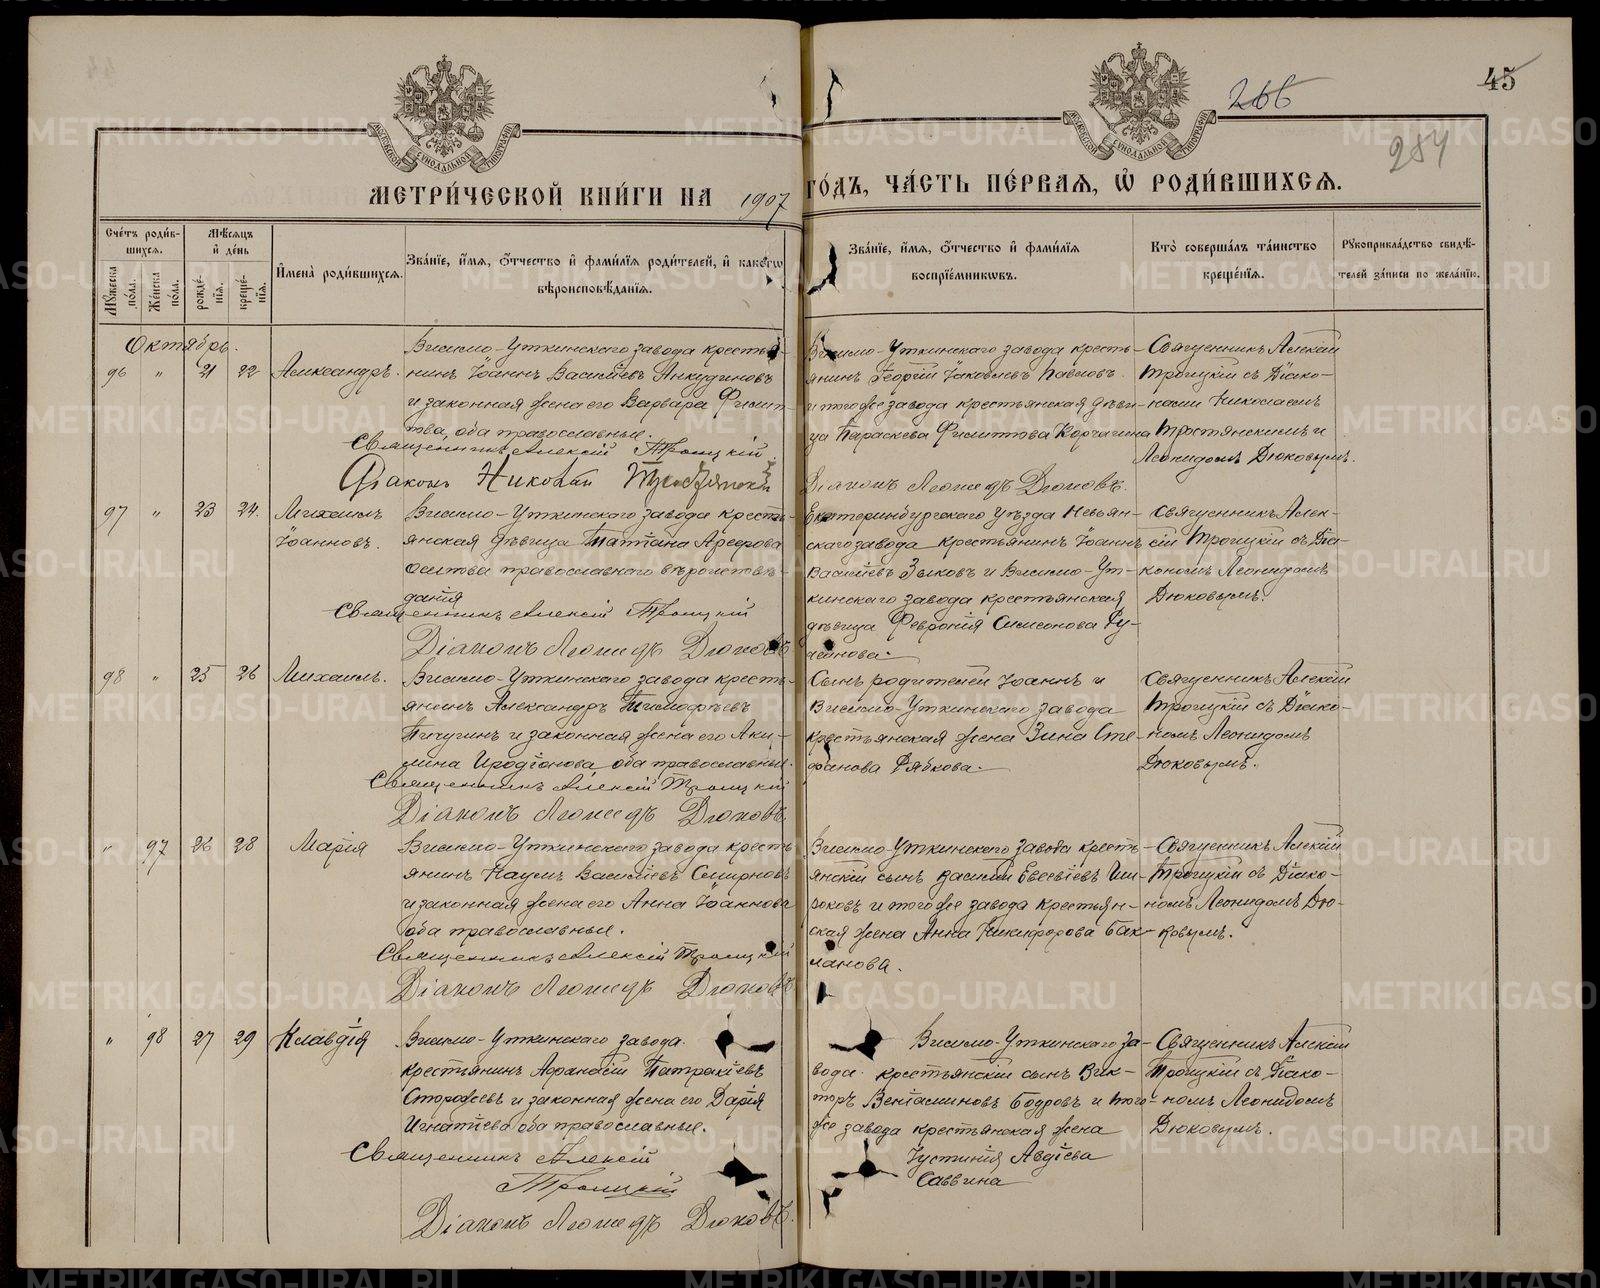 45
266
284
МЕТРИ́ЧЕСКОЙ КНИ́ГИ НА 1907 ГО́ДЪ, ЧА́СТЬ ПЕ́РВАЯ, Ѡ҆ РОДИ́ВШИХСЯ.
Сче́тъ роди́вшихся.
Мꙋ́жеска по́ла.
Же́нска по́ла.
Мѣ́сяцъ и҆ де́нь
рожде́нїя.
креще́нїя.
И҆мена̀ роди́вшихся.
Зва́нїе, и҆́мя, ѻ҆́тчество и҆ фами́лїя роди́телей, и҆ како́гѡ вѣроисповѣ́данїя.
Зва́нїе, и҆́мя, ѻ҆́тчество и҆ фами́лїя воспрїе́мникѡвъ.
Кто̀ соверша́лъ та́инство креще́нїя.
Рꙋкоприкла́дство свидѣ́телей за́писи по жела́нїю.
Октябрь.
96 " 21 22
Александръ.
Висимо-Уткинскаго завода крестья-
нинъ Іоаннъ Васильевъ Анкудиновъ
и законная жена его Варвара Филип-
това, оба православные.
Священникъ Алексій Троицкій
Діаконъ Николай Тростянскій
Висимо-Уткинскаго завода кресть-
янинъ Георгій Іаковлевъ Павловъ
и того же завода крестьянская дѣви-
ца Параскева Филиппова Корчагина
Діаконъ Леонидъ Дюковъ.
Священникъ Алексій
Троицкій съ Діако-
нами Николаемъ
Тростянскимъ и
Леонидомъ Дюковымъ.
97 " 23 24.
Михаилъ
Іоанновъ.
Висимо-Уткинскаго завода кресть-
янская дѣвица Татіана Арефова
православнаго вѣроисповѣ-
данія
Священникъ Алексій Троицкій
Діаконъ Леонидъ Дюковъ
Екатеринбургскаго уѣзда Невьян-
скаго завода крестьянинъ Іоаннъ
Васильевъ Зыковъ и Висимо-Ут-
кинскаго завода крестьянская
дѣвица Февронія Симеонова
Священникъ Алек-
сій Троицкій съ Діа-
кономъ Леонидомъ
Дюковымъ.
98 " 25 26
Михаилъ.
Висимо-Уткинскаго завода кресть-
янинъ Александръ Тимофѣевъ
Пичугинъ и законная жена его Аки-
лина Иродіонова оба православные.
Священникъ Алексій Троицкій
Діаконъ Леонидъ Дюковъ.
Сынъ родителей Іоаннъ и
Висимо-Уткинскаго завода
крестьянская жена Зина Сте-
фанова Рябкова.
Священникъ Алексій
Троицкій съ Діако-
номъ Леонидомъ
Дюковымъ.
" 97 26 28
Марія
Висимо-Уткинскаго завода кресть-
янинъ Наумъ Васильевъ Смирновъ
и законная жена его Анна Іоаннова
оба православные.
Священникъ Алексій Троицкій
Діаконъ Леонидъ Дюковъ
Висимо-Уткинскаго завода кресть-
янскій сынъ Василій Евсевіевъ Ши-
роковъ и того же завода крестьян-
ская жена Анна Никифорова Бак-
ланова.
Священникъ Алексій
Троицкій съ Діако-
номъ Леонидомъ Дю-
ковымъ.
" 98 27 29
Клавдія
Висимо-Уткинскаго завода
крестьянинъ Афанасій Патракіевъ
Сторожевъ и законная жена его Дарія
Игнатіева оба православные.
Священникъ Алексій
Троицкій
Діаконъ Леонидъ Дюковъ.
Висимо-Уткинскаго за-
вода крестьянскій сынъ Вик-
торъ Веніаминовъ Бодровъ и того
же завода крестьянская жена
Іустинія Авдіева
Саввина
Священникъ Алексій
Троицкій съ Діако-
номъ Леонидомъ
Дюковымъ.
METRIKI.GASO-URAL.RU